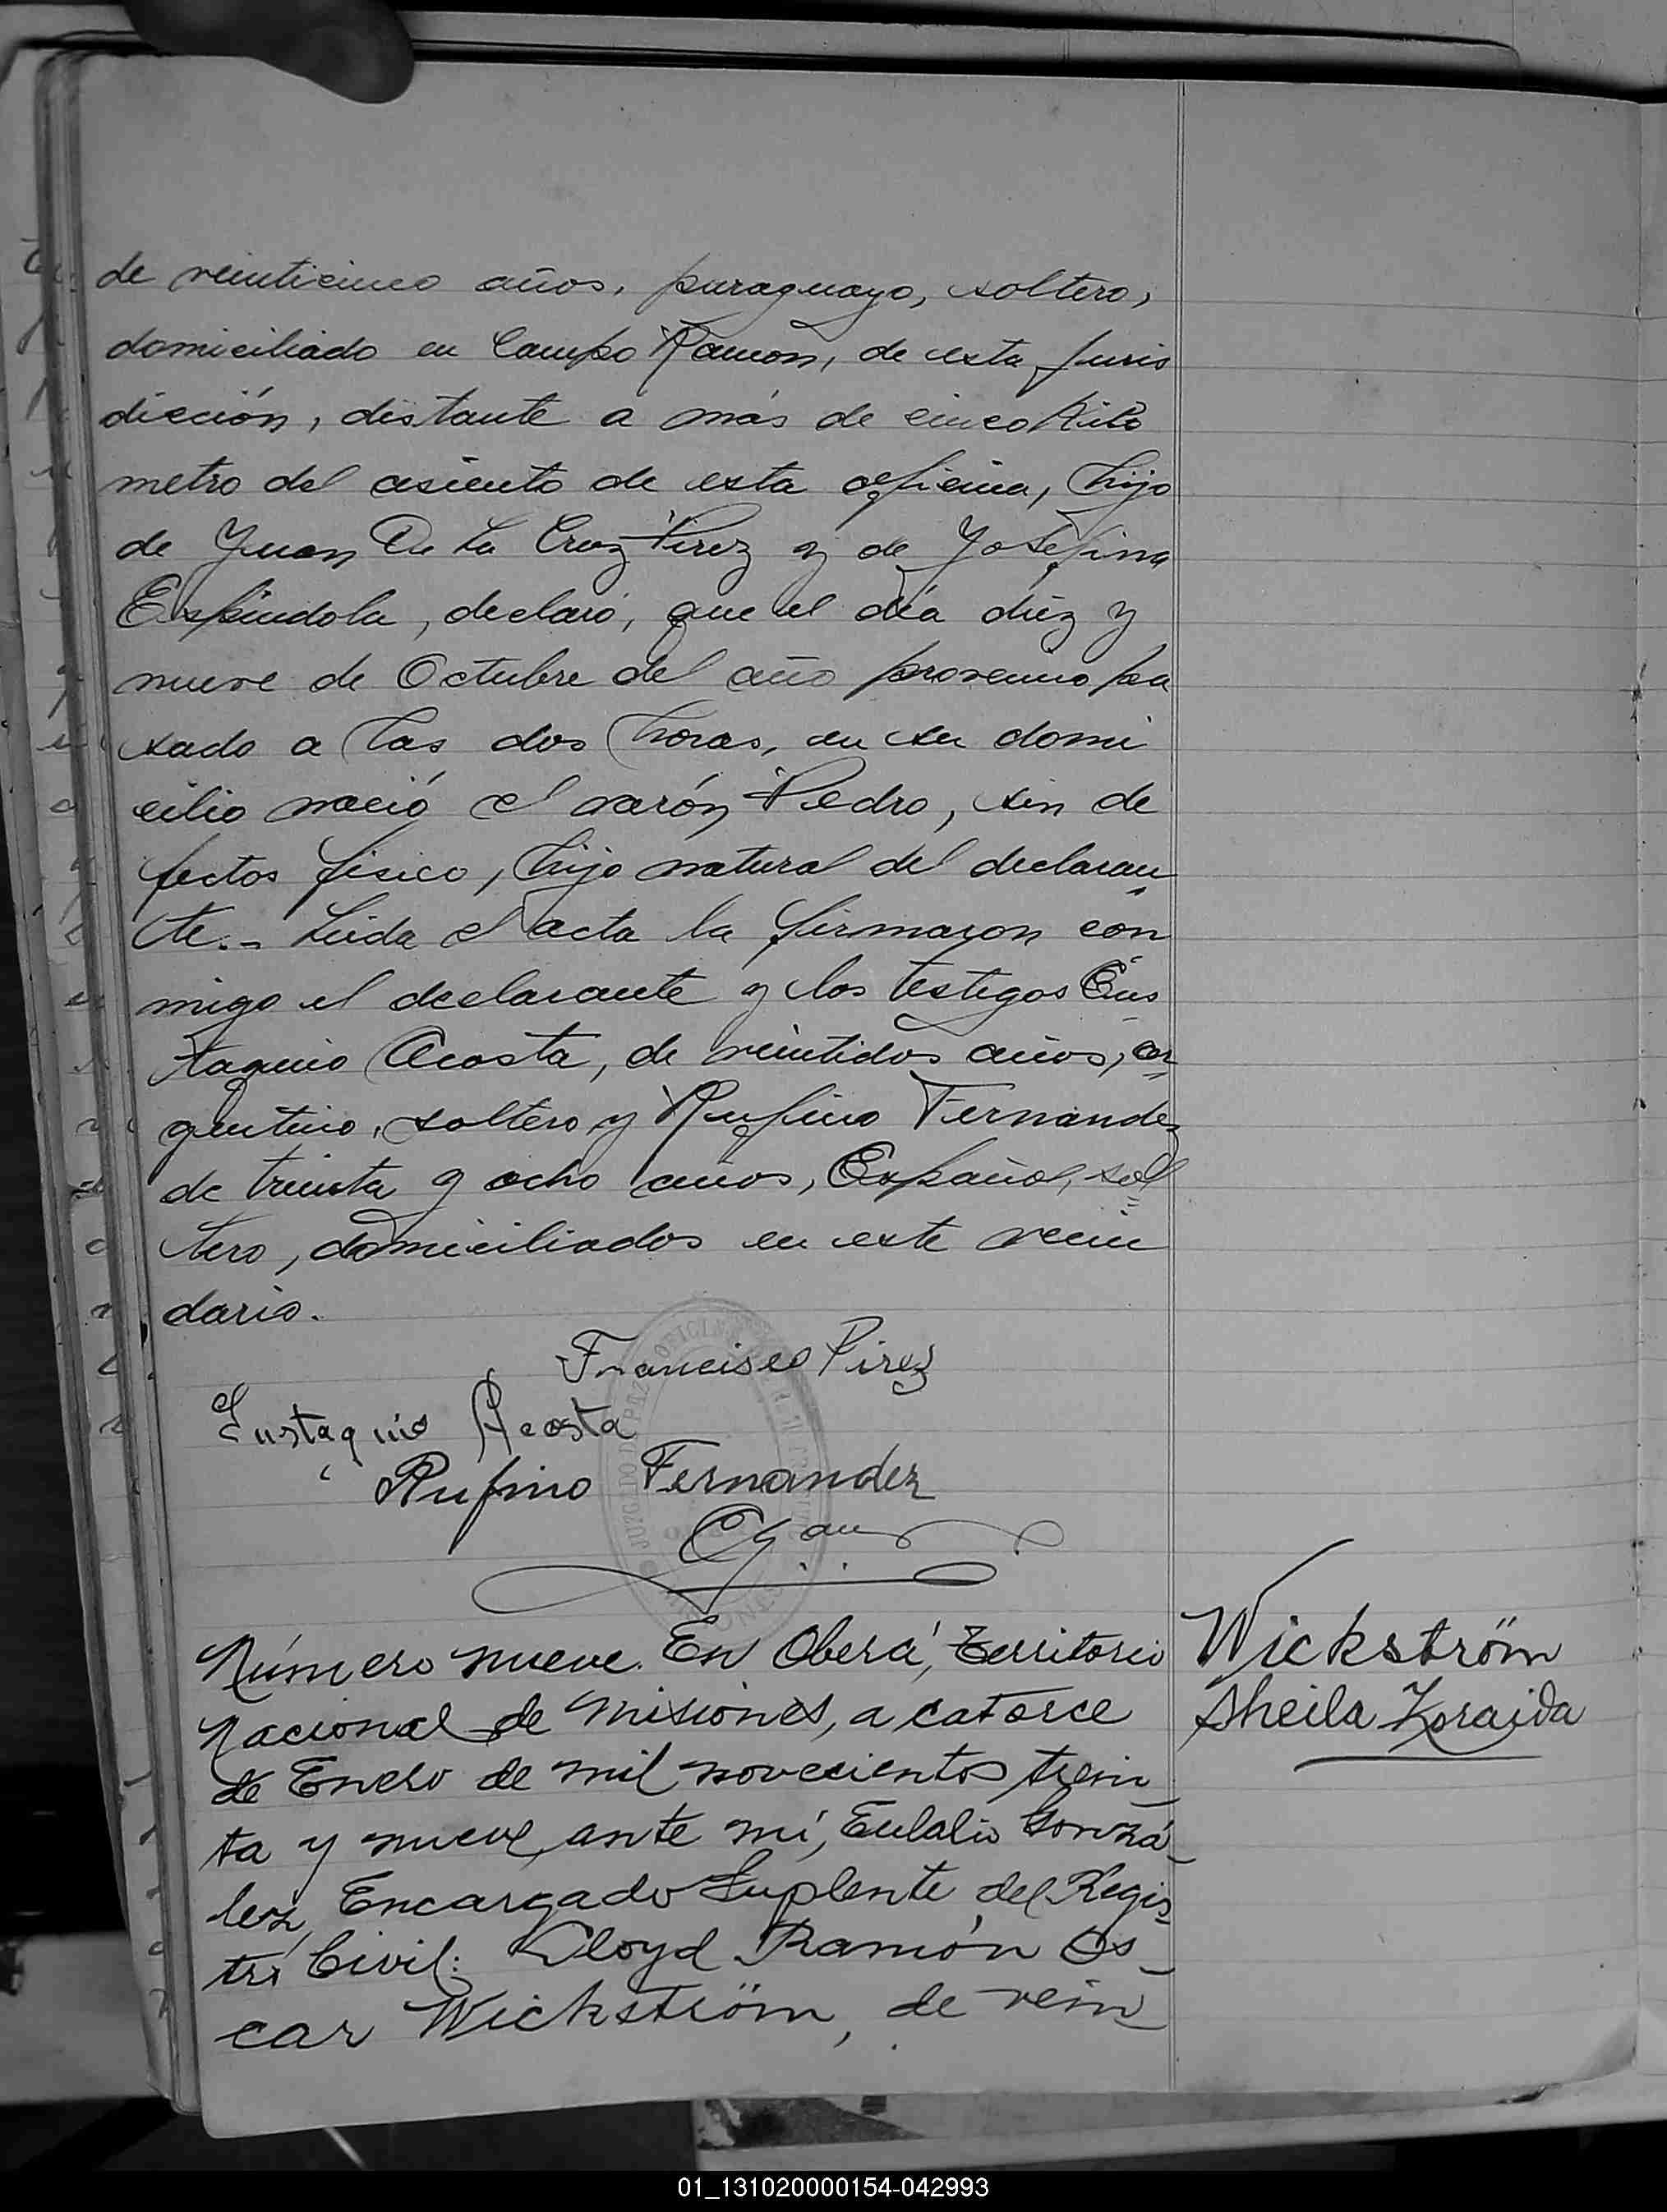 de veinticinco años, paraguayo, soltero,
domiciliado en Campo Ramon, de esta juris
dicción, distante a más de cinco Kilo
metro del asiento de esta oficina, hijo
de Juan De La Cruz Pirez y de Josefina
Espíndola, declaró, que el día diéz y
nueve de Octubre del año proximo pa
sado a las dos horas, en su domi
cilio nació el varón Pedro, sin de
fectos fisico, hijo natural del declaran
te.- Leida el acta la firmaron con
migo el declarante y los testigos Eus
taquio Acosta, de veintidos años, ar
gentino, soltero y Rufino Fernandez
de treinta y ocho años, Español, sol
tero, domiciliados en este vecin
dario.
Francisco Pirez
Eustaquio Acosta
Rufino Fernandez
Número nueve. En Oberá, territorio
Nacional de Misiones, a catorce
de Enero de mil novecientos trein
ta y nueve, ante mí, Eulalio Gonzá-
lez, Encargado Suplente del Regis-
tro Civil: Lloyd Ramón Os-
car Wickström, de vein
Wickström
Sheila Zoraida
01_131020000154-042993